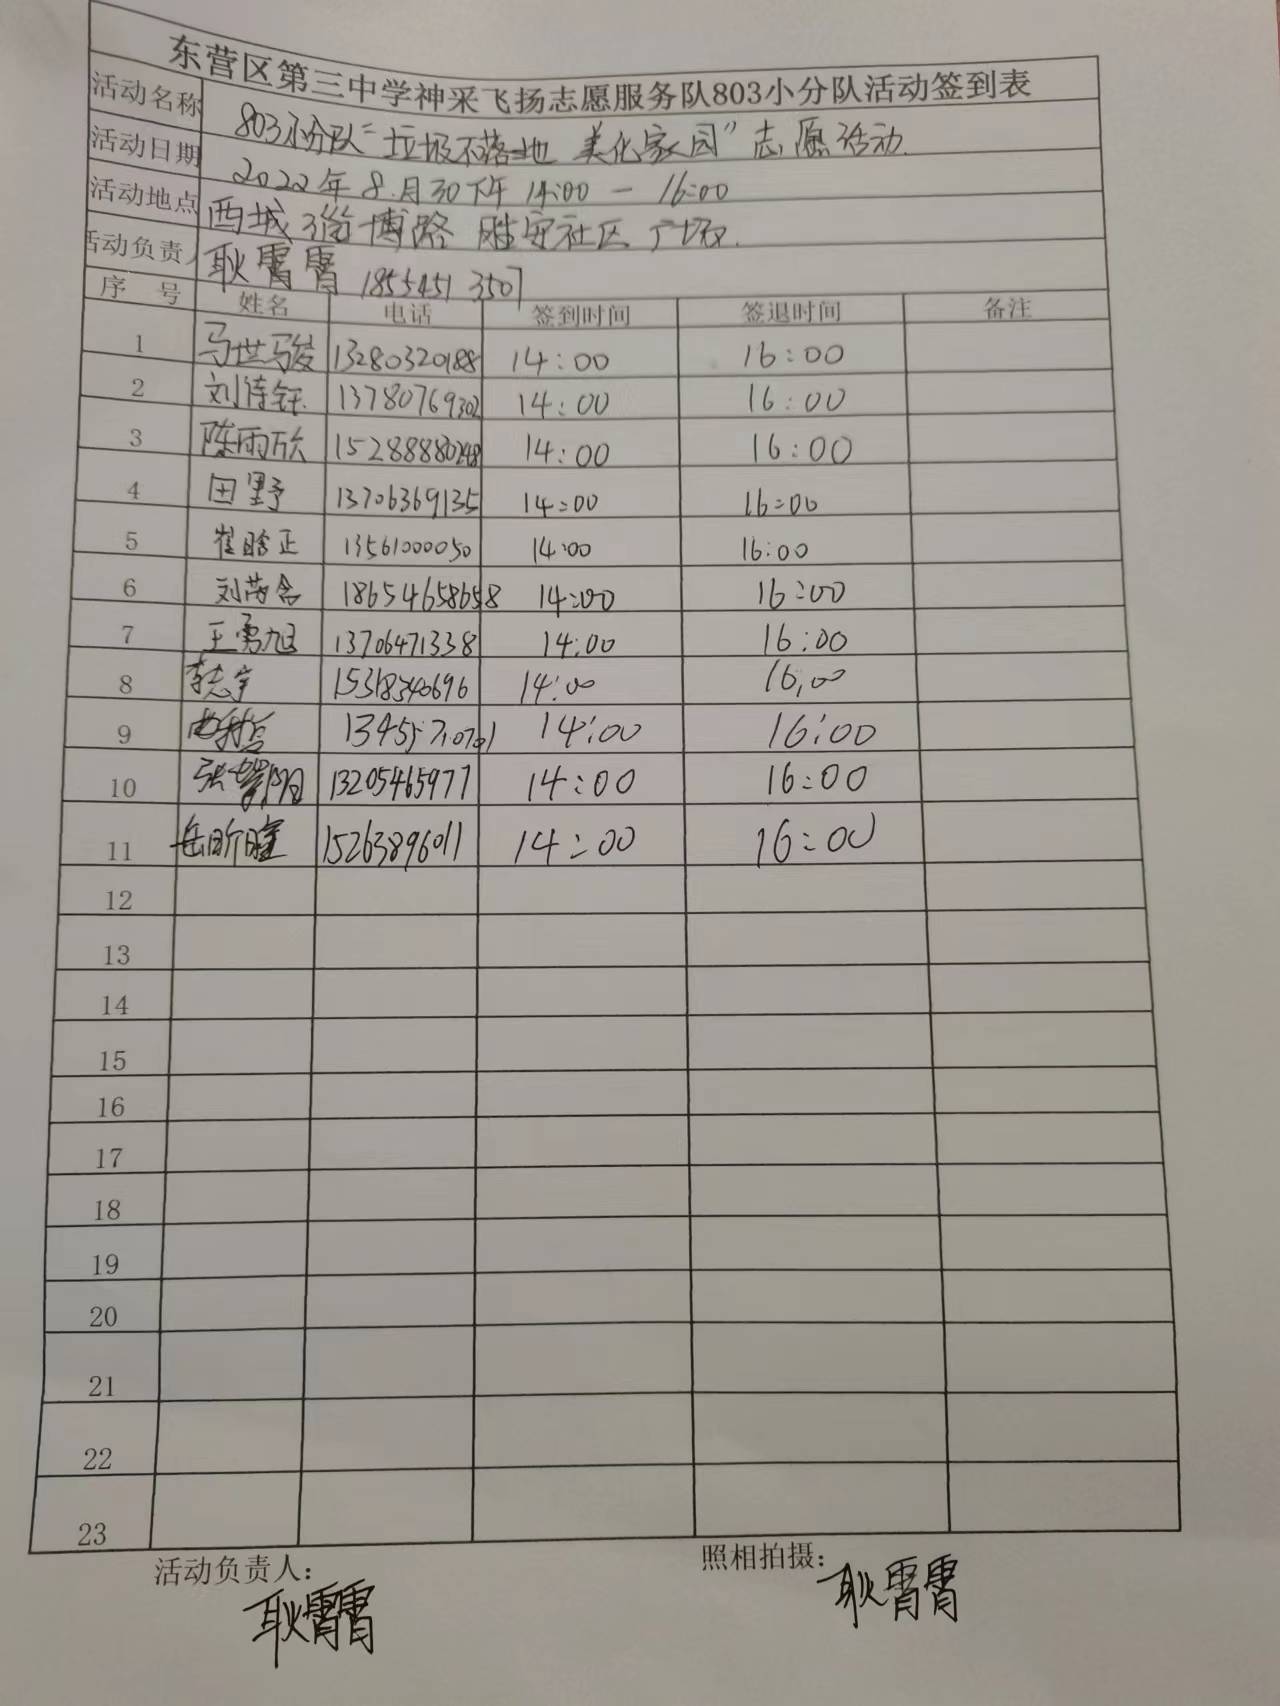 东营区第三中学神采飞扬志愿服务队803小分队活动签到表
活动名称 803小分队“垃圾不落地 美化家园”志愿活动.
活动日期 2022年8月30下午 14:00 - 16:00
活动地点 西城 淄博路 胜安社区 广场.
活动负责人 耿霄霄 18554513507
序 号 姓名 电话 签到时间 签退时间 备注
1 马世骏 13280320188 14:00 16:00
2 刘诗钰 13780769302 14:00 16:00
3 陈雨欣 15288880248 14:00 16:00
4 田野 13706369135 14:00 16:00
5 崔晗正 13561000050 14:00 16:00
6 刘芮含 18654658658 14:00 16:00
7 王勇旭 13706471338 14:00 16:00
8 李志宇 15318340696 14:00 16:00
9 14:00 16:00
10 张 阳 13205465977 14:00 16:00
11 岳昕瞳 15263896011 14:00 16:00
12
13
14
15
16
17
18
19
20
21
22
23
活动负责人: 照相拍摄:
耿霄霄 耿霄霄